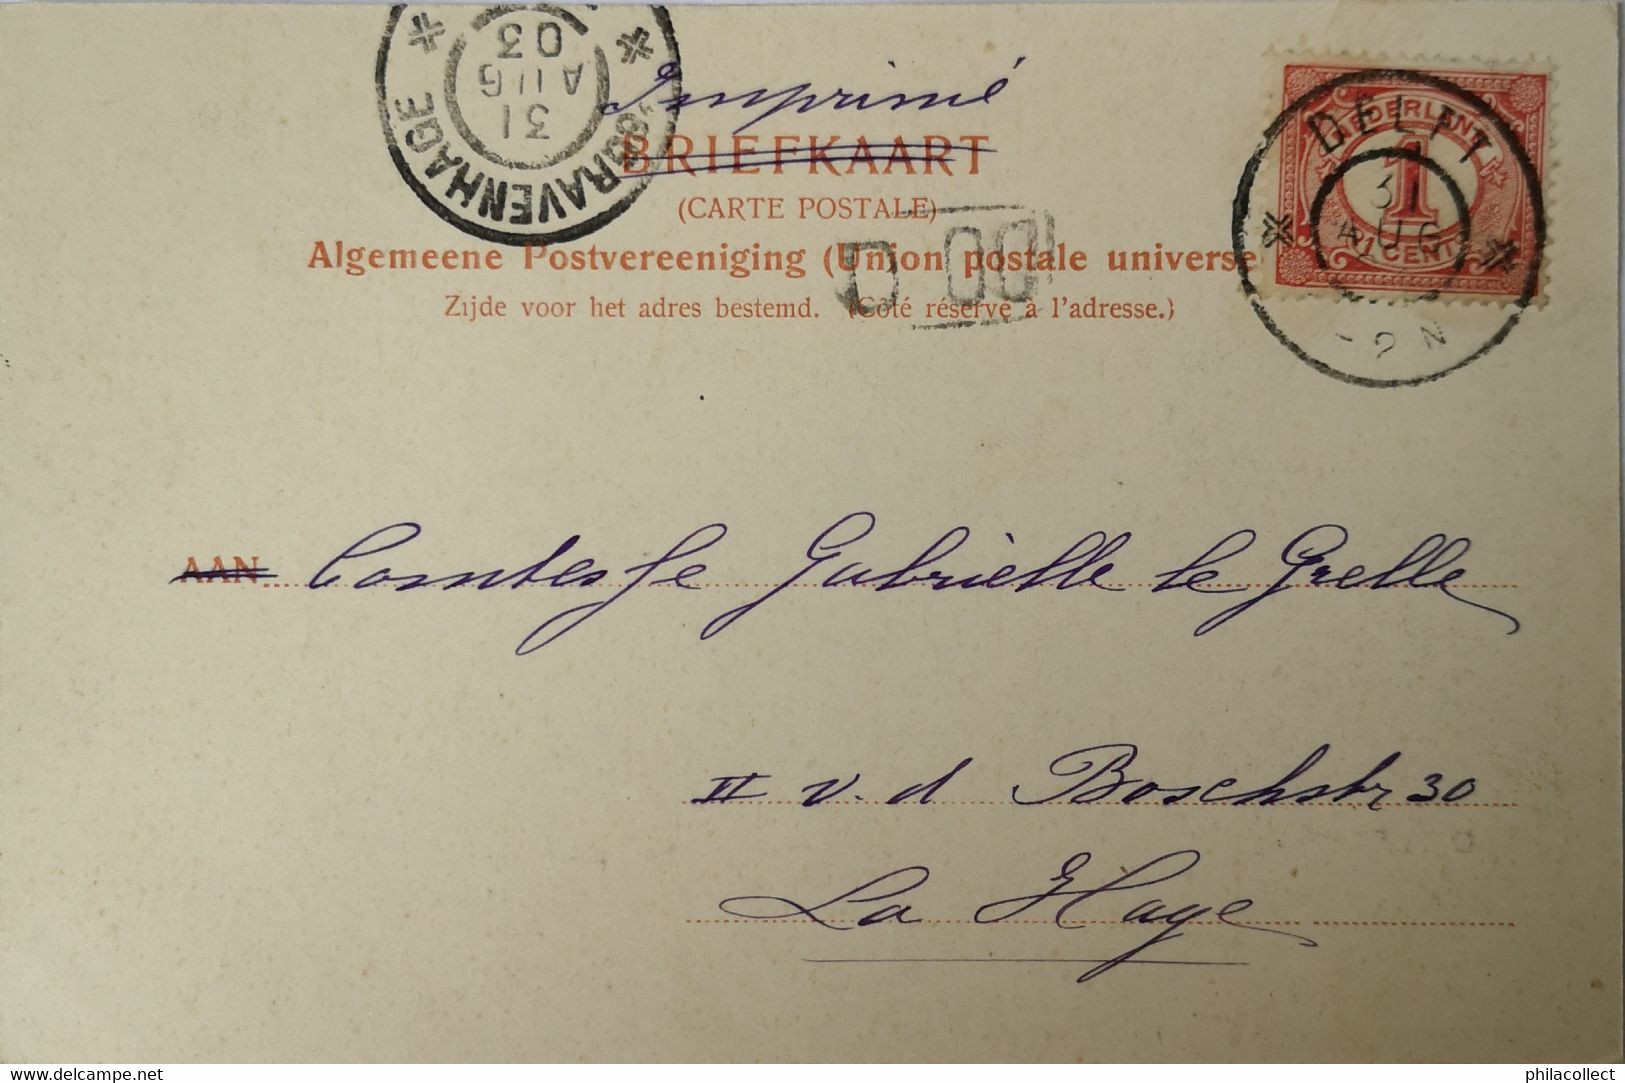 'SGRAVENHAGE
31
AUG
03
Imprimé
BRIEFKAART
(CARTE POSTALE)
Algemeene Postvereeniging (Union postale universe
Zijde voor het adres bestemd. (Côté réservé à l'adresse.)
NEDERLAND
1
1 CENT
DELFT
31
AUG
-2N
AAN Comtesse Gabriëlle le Grelle
II v. d Boschstr 30
La Haye
delcampe.net
philacollect